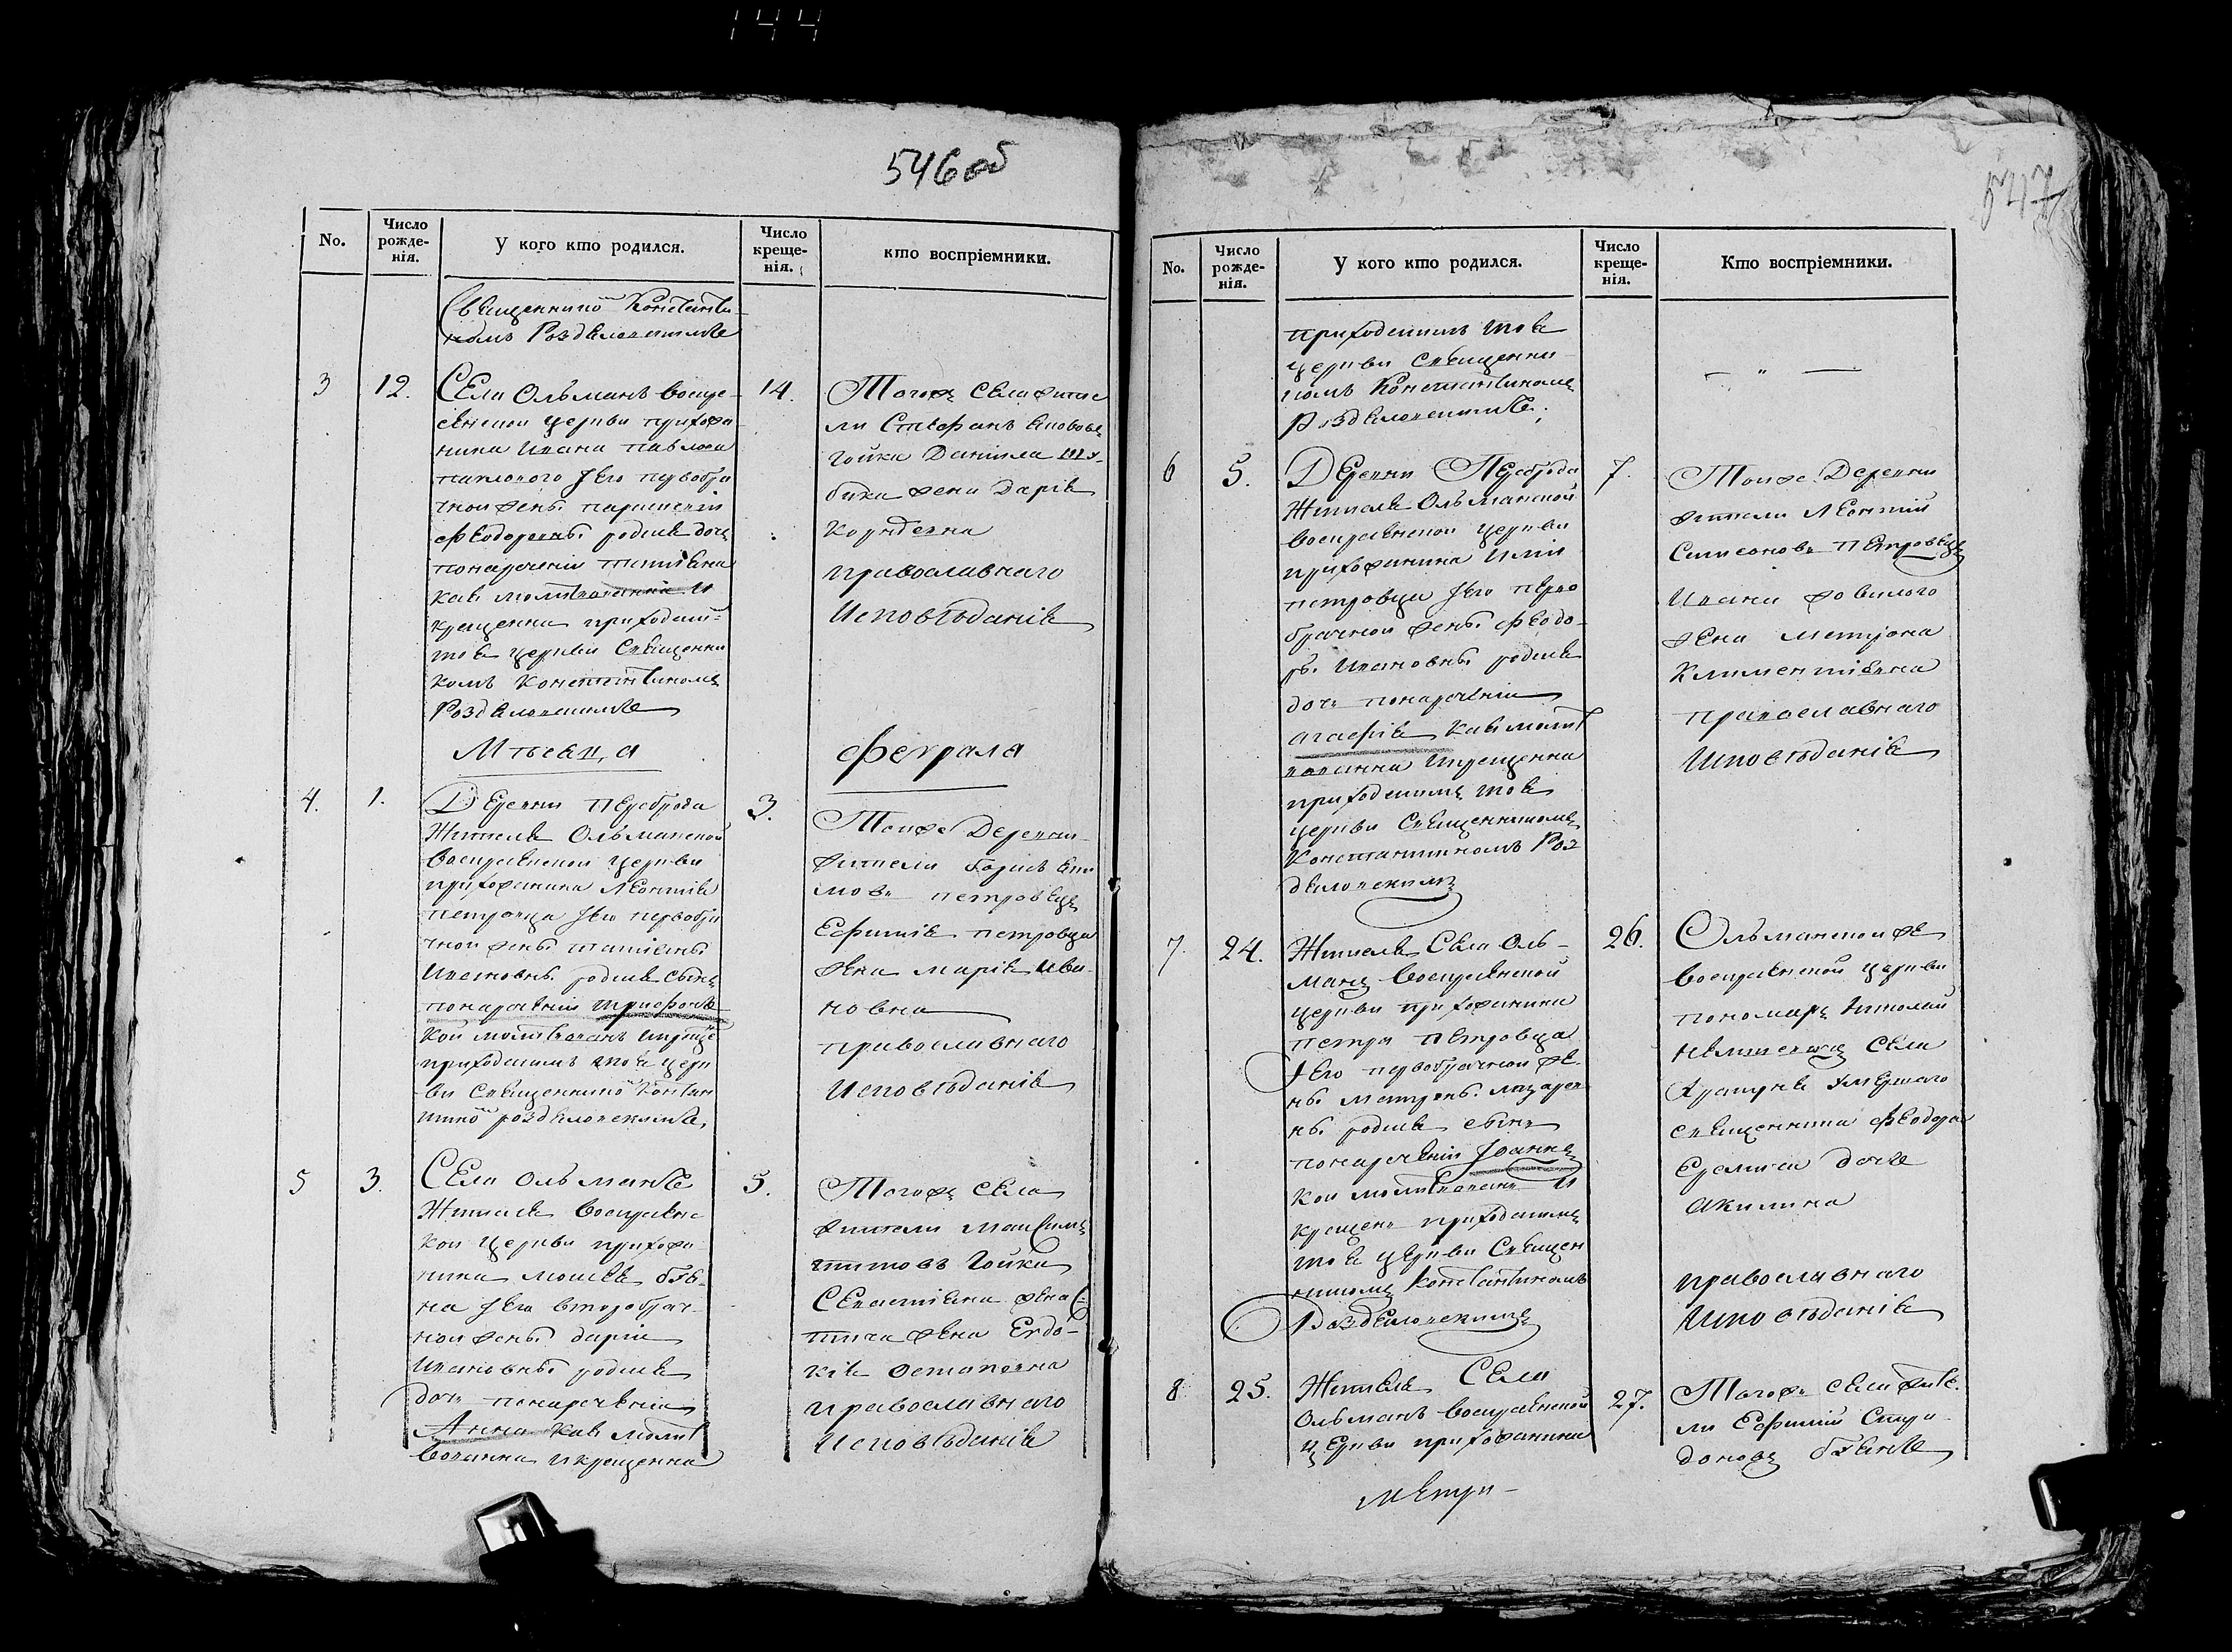 144
546 об
No.
Число рожде-нія.
У кого кто родился.
Число креще-нія.
кто воспріемники.
Священнико Константи
номъ Роздяловскимъ
3
12.
Села Ольманъ Воскре-
сенской церкви прихожа
нина Ивана Павлова
его первобра
чной жены
Феодоровны родися дочь
понаречении Татіяна
коя молитвованна и
крещенна приходским
тоя церкви Священни
комъ Константиномъ
Роздяловскимъ
14.
Тогожъ Села жите
ли Стефанъ
Гойка Даниила
жена Дарія
православнаго
Исповѣданія
Мѣсяца
Февраля
4.
1.
Деревни Переброда
Жителя Ольманской
Воскресенской церкви
прихожанина Леонтія
Петровца Его первобра
чной жены Татіяны
Ивановны родися сынъ
понаречении Трифонъ
кои молитвованъ и креще
приходскимъ тоя церк
ви Священнико Констан
тино роздяловскимъ
3.
Тоижъ Деревни
жители Борисъ
мовъ Петровецъ
Ефимія Петровца
жена Марія Ива
новна
православнаго
Исповѣданія
5
3.
Села Ольманъ
Жителя Воскресенс
кои Церкви прихожа
нина Моисея
на Его второбрач
ной жены Дарiи
Ивановны родися
дочь понаречении
Анна коя молит
вованна и крещенна
5.
Тогожъ Села
жители Максимъ
Титовъ Гойка
Севастіяна
жена Евдо-
кія Остаповна
православнаго
Исповѣданія
547
No.
Число рожде-нія.
У кого кто родился.
Число креще-нія.
Кто воспріемники.
приходскимъ тоя
церкви Священни
комъ Константиномъ
Роздяловскимъ.
— „ —
6
5.
Деревни Переброда
Жителя Ольманской
Воскресенской церкви
прихожанина Иліи
Петровца Его перво
брачной жены Феодо
ры Ивановны родися
дочь понаречении
Агафія коя молит
вованна и крещенна
приходскимъ тоя
церкви Священникомъ
Константиномъ Роз
дяловскимъ
7.
Тоижъ Деревни
жители Леонтій
Симеоновъ Петровецъ
Ивана
жена Матрона
Климентіевна
православнаго
Исповѣданія
7.
24.
Жителя Села Оль-
манъ Воскресенской
церкви прихожанина
Петра Петровца
Его первобрачной же
ны Матроны Лазарев
ны родися сынъ
понаречении Іоаннъ
кои молитвованъ и
крещенъ приходскимъ
тоя церкви Священ
никомъ Константиномъ
Роздяловскимъ
26.
Ольманской же
Воскресенской церкви
пономарь Николай
Села
умершаго
священника Феодора
дочь
Акилина
православнаго
Исповѣданія
8
25.
Жителя Села
Ольманъ Воскресенской
Церкви прихожанина
27.
Тогожъ села жите
ли Ефимій Спири
доновъ
Метри-